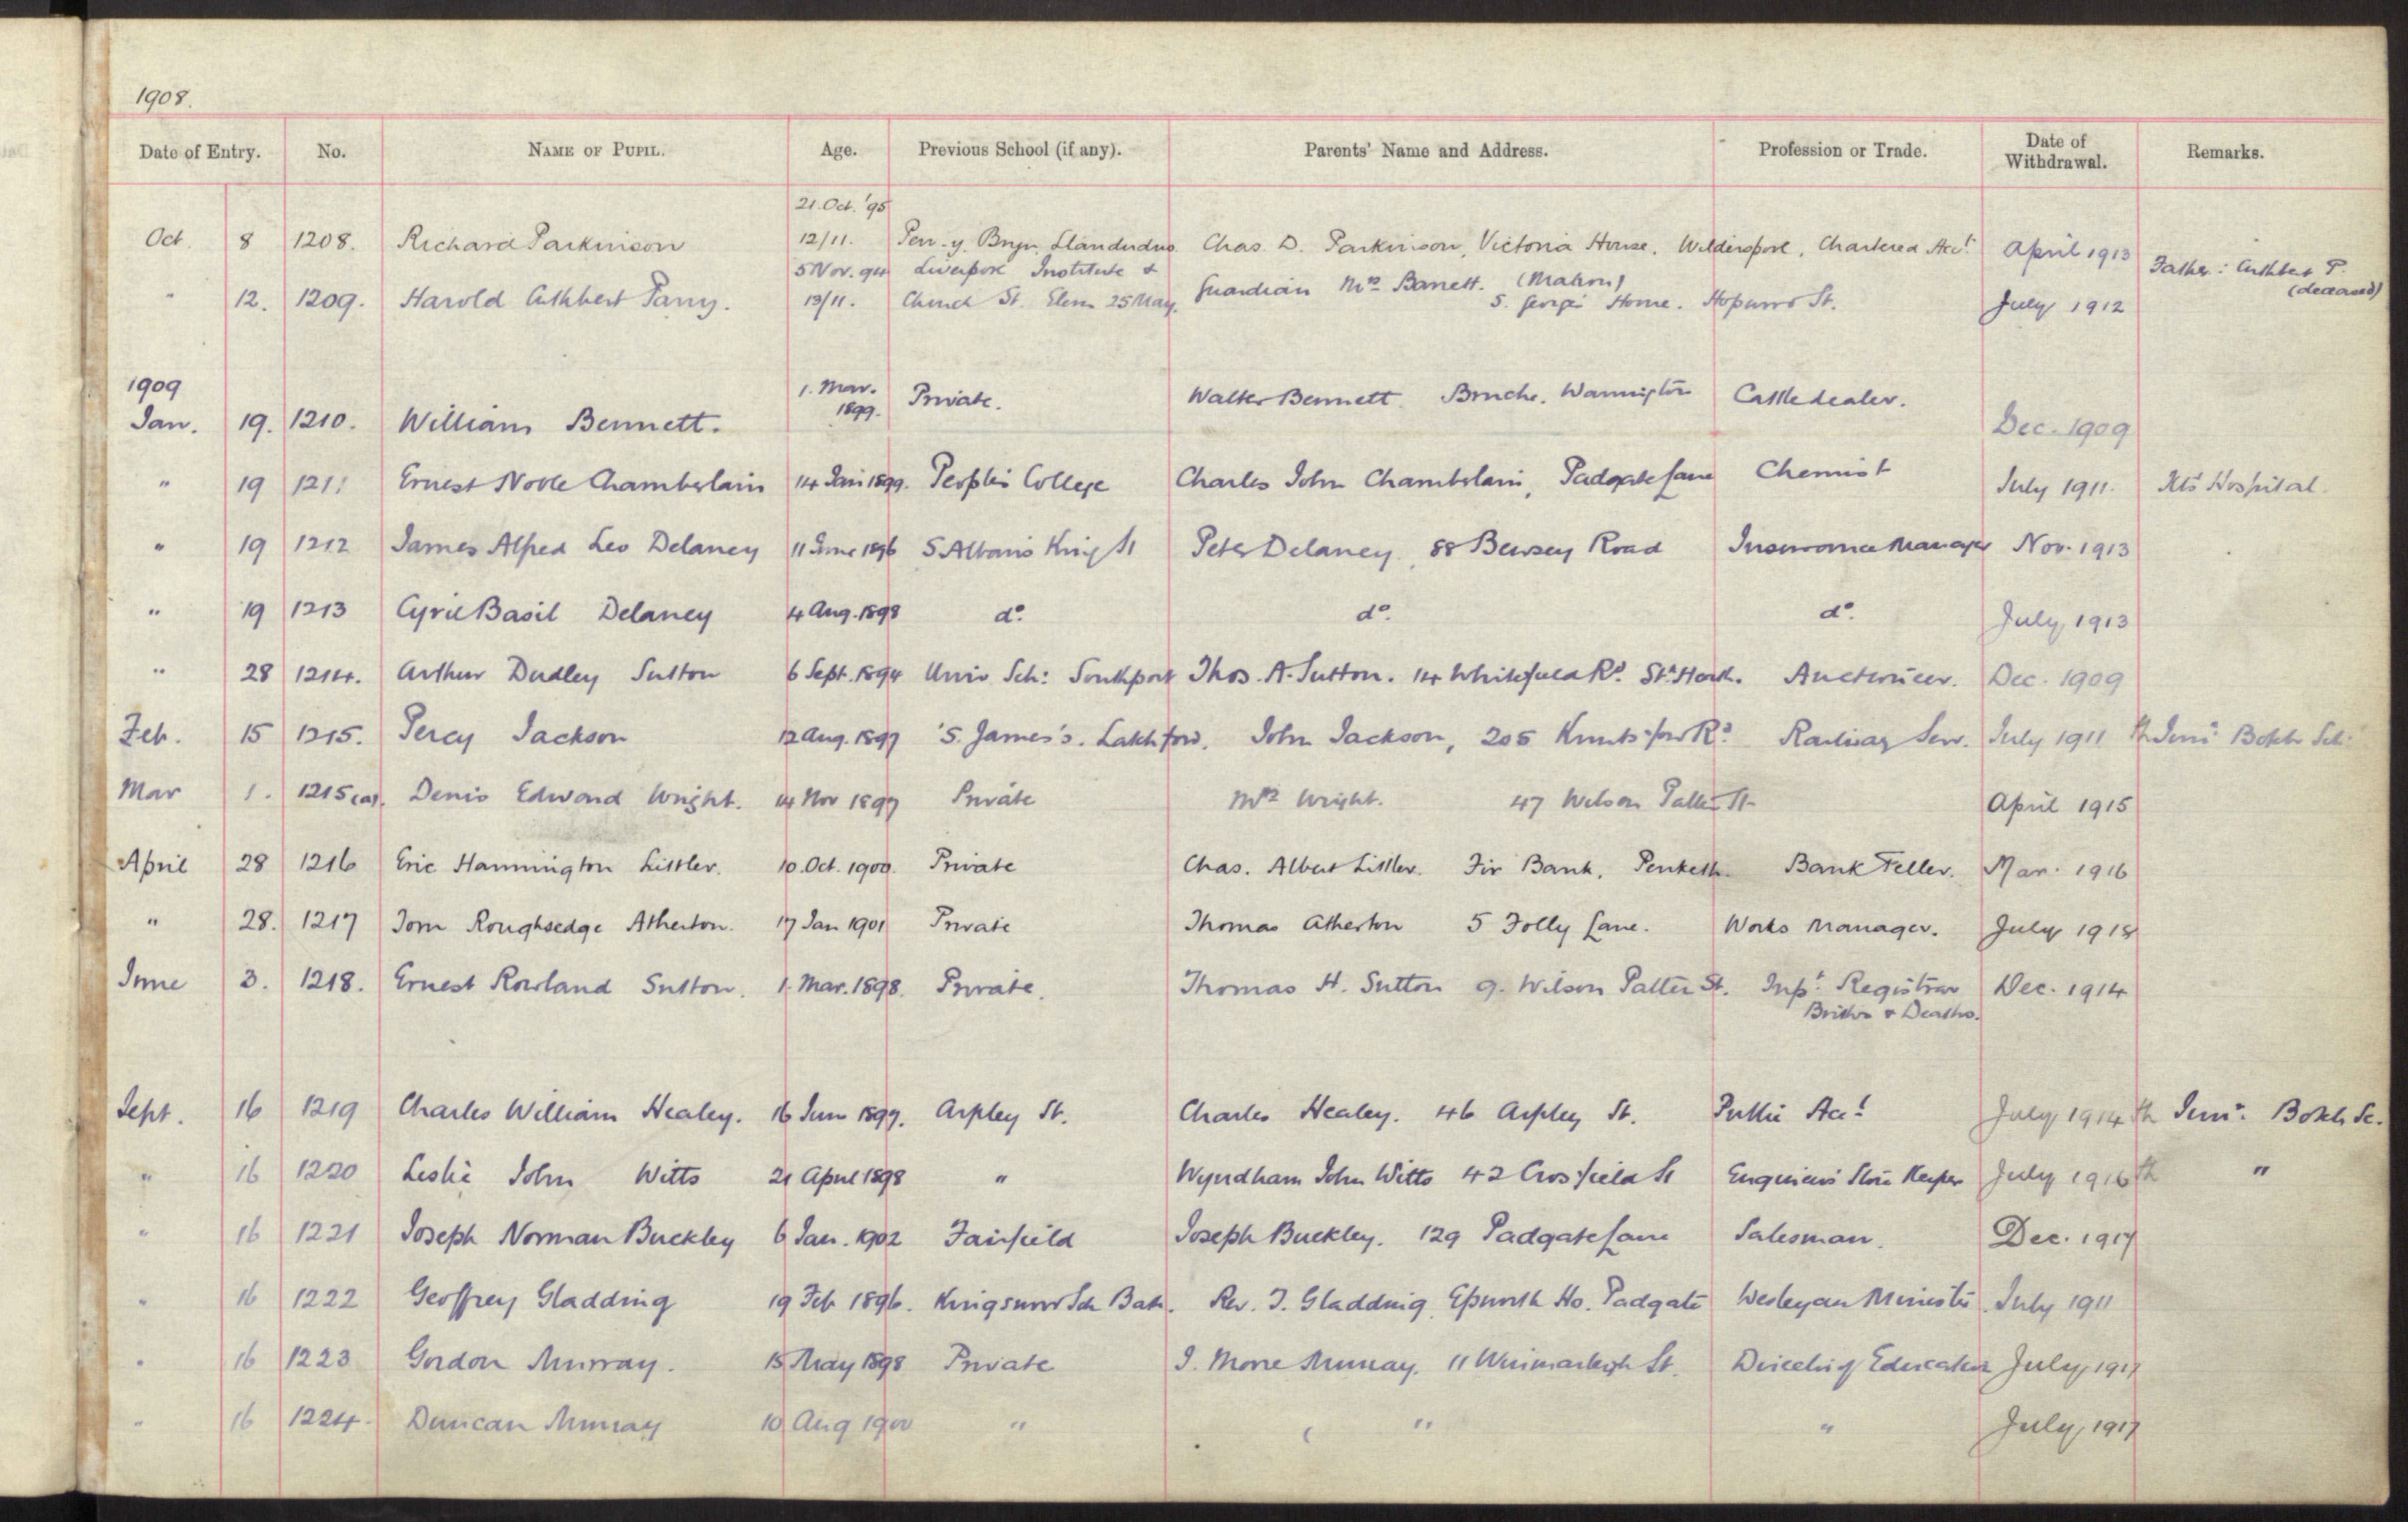 1908.
Date of Entry. No. NAME OF PUPIL. Age. Previous School (if any). Parents' Name and Address. Profession or Trade. Date of Withdrawal. Remarks.
21. Oct. '95
Oct. 8 1208. Richard Parkinson 12/11. Pen-y-Bryn Llandudno Chas. D. Parkinson, Victoria House. Wilderspool, Chartered Acct. April 1913
5 Nov. 94 Liverpool Institute & Father: Cuthbert P. (deceased)
" 12. 1209. Harold Cuthbert Parry. 13/11. Church St. Elem 25 May. Guardian Mrs Barrett. (Matron) S. George's Home. St. July 1912
1909
Jan. 19. 1210. William Bennett. 1. Mar. 1899. Private. Walter Bennett. Bruche. Warrington Cattledealer. Dec. 1909
" 19 1211 Ernest Noble Chamberlain 14 Jan 1899. People's College Charles John Chamberlain, Padgate Lane Chemist July 1911. Hospital.
" 19 1212 James Alfred Leo Delaney 11 June 1896 S Alban's King St Peter Delaney, 88 Bewsey Road Insurance Manager Nov. 1913
" 19 1213 Cyril Basil Delaney 4 Aug. 1898 do. do. do. July 1913
" 28 1214. Arthur Dudley Sutton 6 Sept. 1894 Univ Sch: Southport Thos. A. Sutton. 14 Whitefield Rd. Stn Heath. Auctioneer. Dec. 1909
Feb. 15 1215. Percy Jackson 12 Aug. 1897 S. James's. Latchford. John Jackson, 205 Knutsford Rd. Railway Serv. July 1911 Junr Boteler Sch:
Mar 1. 1215(a). Denis Edward Wright. 14 Nov 1897 Private Mrs Wright. 47 Wilson Patten St. April 1915
April 28 1216 Eric Hannington Littler. 10. Oct. 1900. Private Chas. Albert Littler. Fir Bank. Penketh. Bank Teller. Mar. 1916
" 28. 1217 Tom Roughsedge Atherton. 17 Jan 1901 Private Thomas Atherton 5 Folly Lane. Works Manager. July 1918
June 3. 1218. Ernest Rowland Sutton. 1. Mar. 1898. Private. Thomas H. Sutton 9. Wilson Patten St. Supt. Registrar Dec. 1914
Births & Deaths.
Sept. 16 1219 Charles William Healey. 16 Jun 1897. Arpley St. Charles Healey. 46 Arpley St. Public Acct July 1914 Junr. Boteler Sc.
" 16 1220 Leslie John Witts 21 April 1898 " Wyndham John Witts 42 Crosfield St Engineers' Store Keeper July 1916 "
" 16 1221 Joseph Norman Buckley 6 Jan. 1902 Fairfield Joseph Buckley. 129 Padgate Lane Salesman. Dec. 1917
" 16 1222 Geoffrey Gladding 19 Feb 1896. Kingswood Sch Bath. Rev. T. Gladding, Epworth Ho. Padgate Wesleyan Minister July 1911
" 16 1223 Gordon Murray. 15 May 1898 Private J. Moore Murray. 11 Winmarleigh St. Director of Education July 1917
" 16 1224. Duncan Murray 10 Aug 1900 " " " July 1917